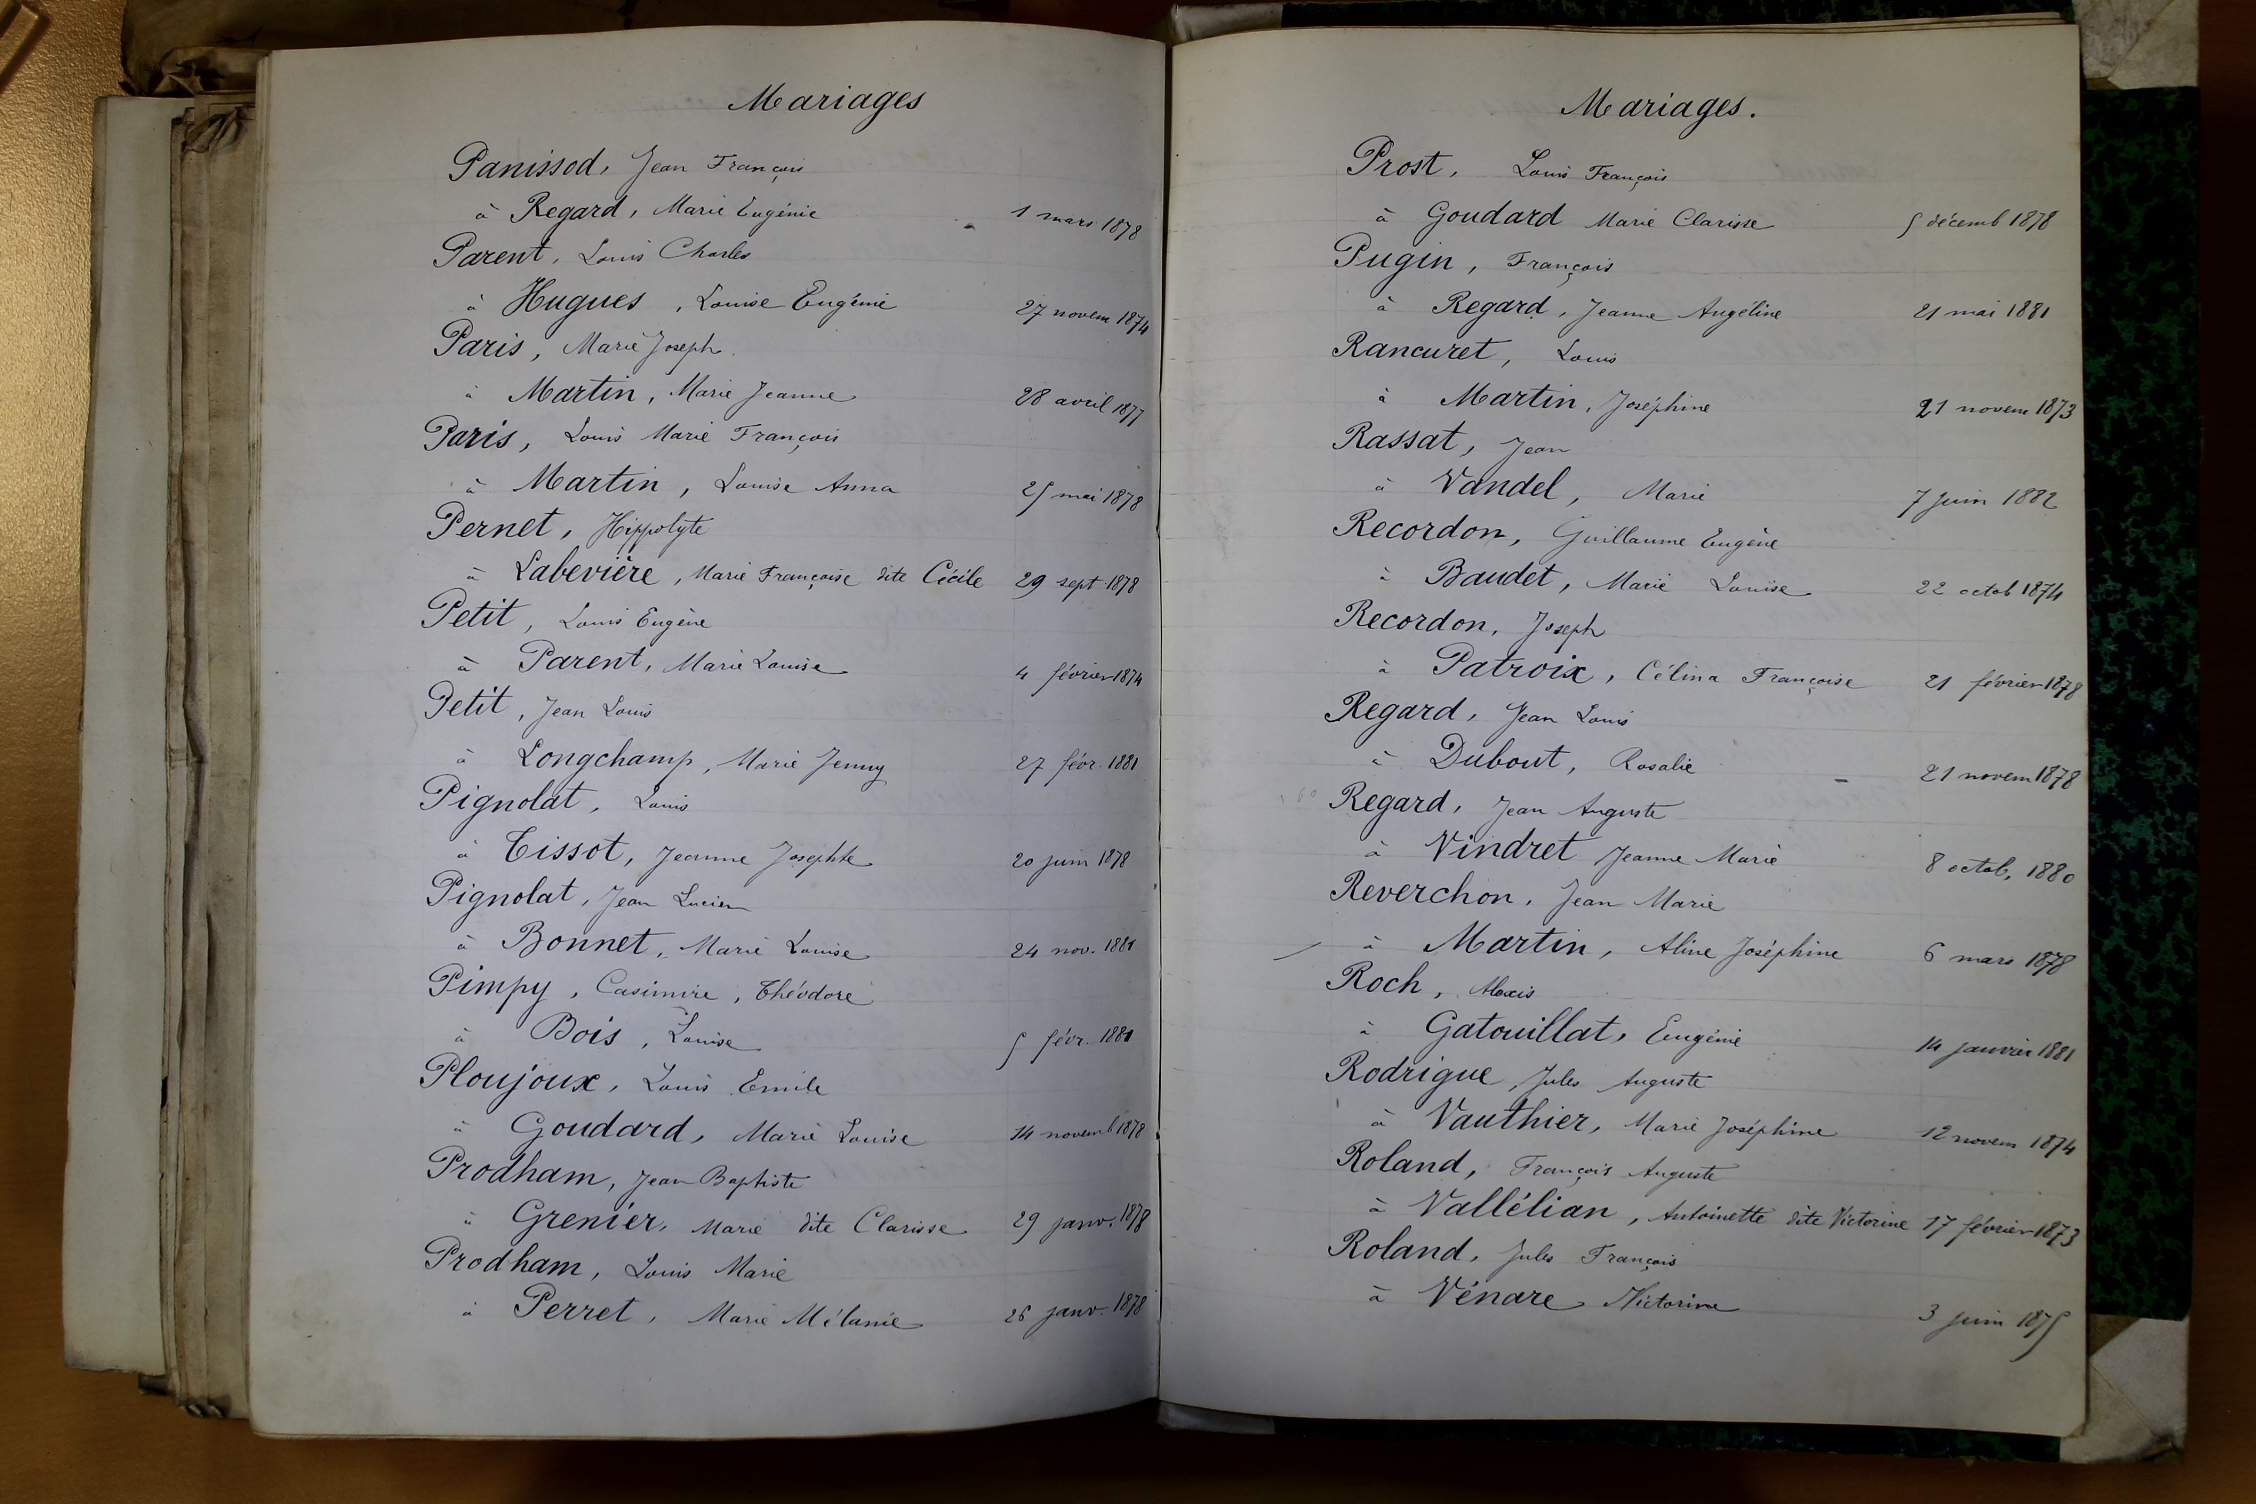 Mariages
Panissod, Jean François
à Regard, Marie Eugénie 1 mars 1878
Parent, Louis Charles
à Hugues, Louise Eugénie 27 novem 1874
Paris, Marie Joseph
à Martin, Marie Jeanne 28 avril 1877
Paris, Louis Marie François
à Martin, Louise Anna 25 mai 1878
Pernet, Hippolyte
à Labevière, Marie Françoise dite Cécile 29 sept 1878
Petit, Louis Eugène
à Parent, Marie Louise 4 février 1874
Petit, Jean Louis
à Longchamp, Marie Jenny 27 févr. 1881
Pignolat, Louis
à Tissot, Jeanne Josephte 20 juin 1878
Pignolat, Jean Lucien
à Bonnet, Marie Louise 24 nov. 1881
Pimpy, Casimire, Théodore
à Bois, Louise 5 févr. 1881
Ploujoux, Louis Emile
à Goudard, Marie Louise 14 novemb 1878
Prodham, Jean Baptiste
à Grenier, Marie dite Clarisse 29 janv. 1878
Prodham, Louis Marie
à Perret, Marie Mélanie 26 janv. 1878
Mariages.
Prost, Louis François
à Goudard Marie Clarisse 5 décemb 1878
Pugin, François
à Regard, Jeanne Angéline 21 mai 1881
Rancuret, Louis
à Martin, Joséphine 21 novem 1873
Rassat, Jean
à Vandel, Marie 7 juin 1882
Recordon, Guillaume Eugène
à Baudet, Marie Louise 22 octob 1874
Recordon, Joseph
à Patroix, Célina Françoise 21 février 1878
Regard, Jean Louis
à Dubout, Rosalie 21 novem 1878
Regard, Jean Auguste
à Vindret Jeanne Marie 8 octob, 1880
Reverchon, Jean Marie
à Martin, Aline Joséphine 6 mars 1878
Roch, Alexis
à Gatouillat, Eugénie 14 janvier 1881
Rodrigue, Jules Auguste
à Vauthier, Marie Joséphine 12 novem 1874
Roland, François Auguste
à Vallélian, Antoinette dite Victorine 17 février 1873
Roland, Jules François
à Vénare Victorine 3 juin 1875